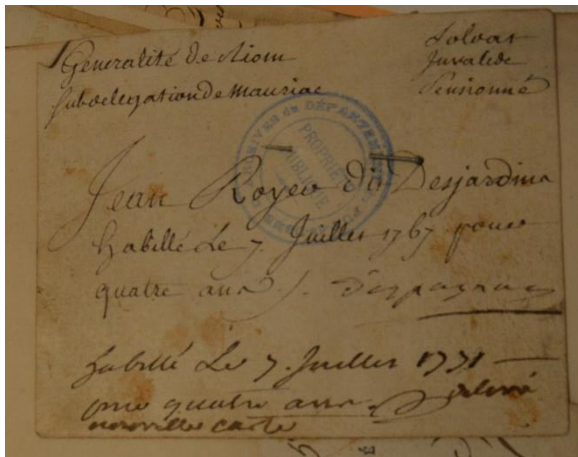 Generalité de Riom
Subdelegation de Mauriac
Soldat
Invalide
Pensionné
ARCHIVES du DÉPARTEMENT
PROPRIÉTÉ
PUBLIQUE
Jean Royer dit Desjardins
habillé Le 7 Juillet 1767 pour
quatre ans
habillé Le 7. Juillet 1771
pour quatre ans. delivré
nouvelle carte